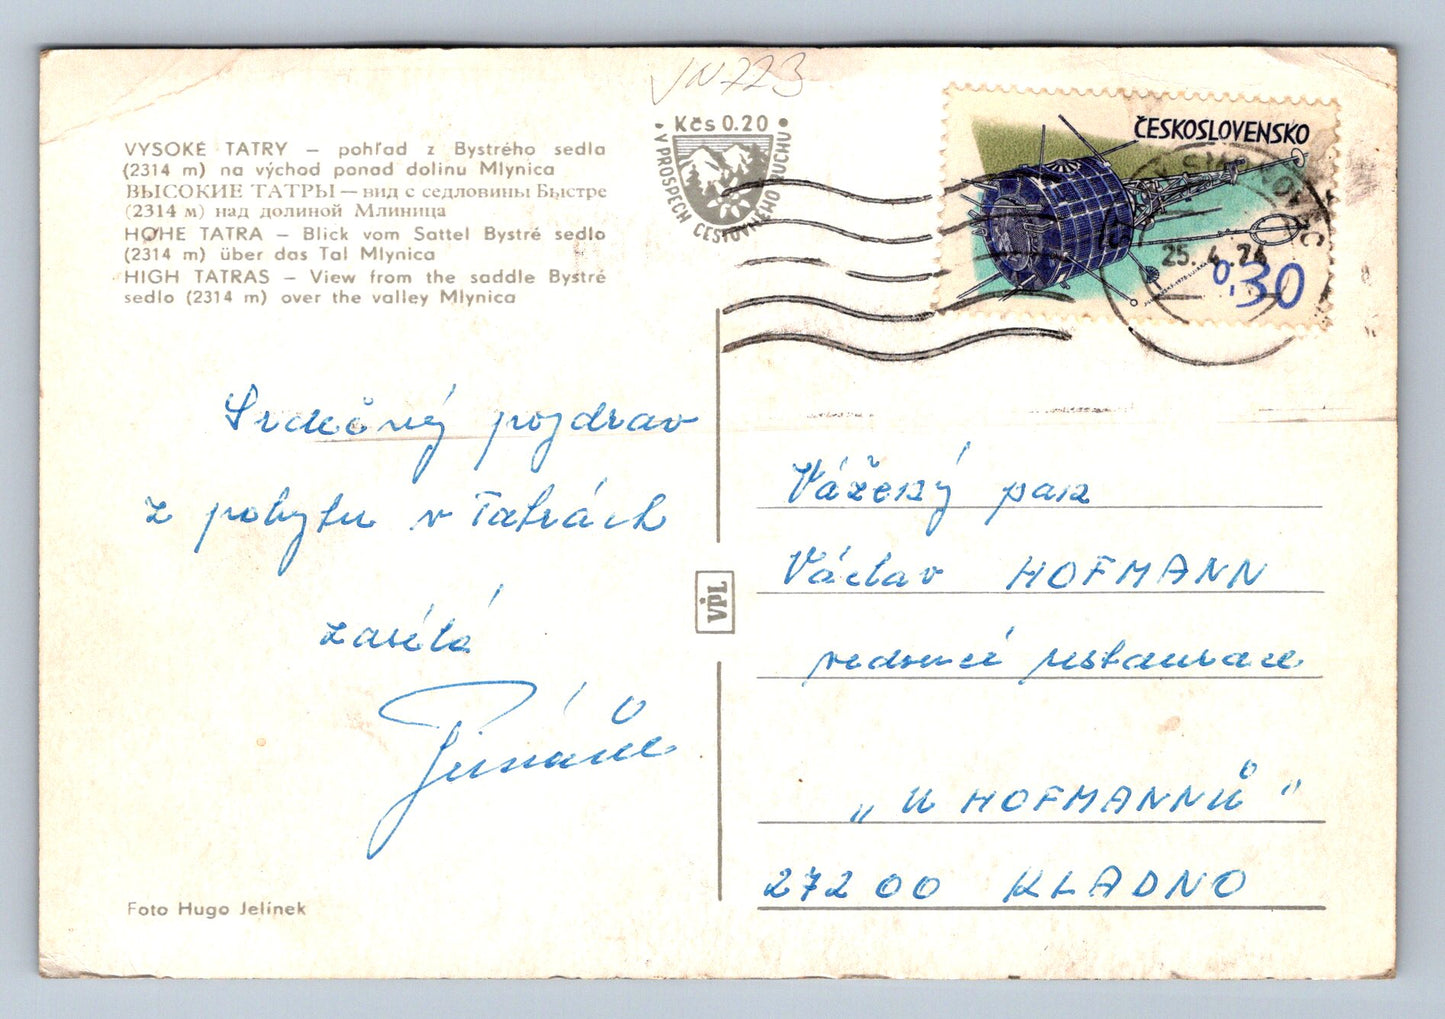 VN723
VYSOKÉ TATRY – pohľad z Bystrého sedla
(2314 m) na východ ponad dolinu Mlynica
ВЫСОКИЕ ТАТРЫ — вид с седловины Быстре
(2314 м) над долиной Млиница
HOHE TATRA – Blick vom Sattel Bystré sedlo
(2314 m) über das Tal Mlynica
HIGH TATRAS – View from the saddle Bystré
sedlo (2314 m) over the valley Mlynica
Kčs 0.20
V PROSPECH CESTOVNÉHO RUCHU
ČESKOSLOVENSKO
25. 4. 74
0,30
Srdečný pozdrav
z pobytu v Tatrách
zasílá
VPL
Vážený pan
Václav HOFMANN
vedoucí restaurace
„U HOFMANNŮ"
272 00 KLADNO
Foto Hugo Jelínek